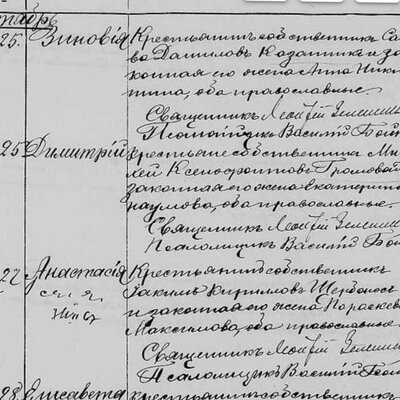 25. Зиновія Крестьянинъ собственникъ Са
ва Даниловъ Казатикъ и за
конная его жена Анна Ники
тина, оба православные.
Священникъ
Псаломщикъ Василій Бой
25 Димитрій Крестьяне собственники Ми
хей Ксенофонтовъ Громовой
законная его жена Екатерина
Наумова, оба православные.
Священникъ
Псаломщикъ Василій Бой
27 Анастасія Крестьянинъ собственникъ
Іакимъ Кирилловъ
и законная его жена Параскев
Максимова, оба православные
Священникъ
Псаломщикъ Василій Бой
28 Елисавета Крестьянинъ собственникъ